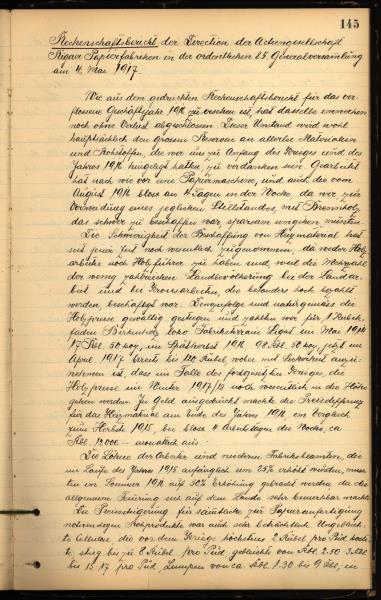 145
Rechenschaftsbericht der Direction der Actiengesellschaft
Rigaer Papierfabriken in der ordentlichen 25. Generalversammlung
am 4. Mai 1917.
Wie aus dem gedruckten Rechenschaftsbericht für das ver-
flossene Geschäftsjahr 1916 zu ersehen ist, hat dasselbe
noch ohne Verlust abgeschlossen. Dieser Umstand wird wohl
hauptsächlich den grossen Reserven an allerlei Materialien
und Rohstoffen, die wir uns zu Anfang des Krieges und des
Jahres 1916 hingelegt hatten, zu verdanken sein. Gearbeitet
hat nach wie vor eine Papiermaschine, und auch die vom
August 1916 bloss an 4 Tagen in der Woche, da wir zur
Vermeidung eines jeglichen Stillstandes, mit Brennholz,
das schwer zu beschaffen war, sparsam umgehen mussten.
Die Schwierigkeit der Beschaffung von Heizmaterial hat
seit jener Zeit noch wesentlich zugenommen, da weder Holz-
arbeiter noch Holzführer zu haben sind, weil die Mehrzahl
der wenig zahlreichen Landbevölkerung bei der Landar-
beit und bei Kronsarbeiten, die besonders hoch bezahlt
werden, beschäftigt war. Demzufolge sind naturgemäss die
Holzpreise gewaltig gestiegen und zahlten wir für 1 Kubik-
faden Birkenholz loco Fabriksterrain Ligat im Mai 1916
im Spätherbst 1916
April 1917 bereits bis 120 Rubel, wobei mit Sicherheit anzu-
nehmen ist, dass im Falle des fortgesetzten Krieges, die
Holzpreise im Winter 1917/18 noch wesentlich in die Höhe
gehen werden. In Geld ausgedrückt machte die Preisdifferenz
für das Heizmaterial am Ende des Jahres 1916, im Vergleich
zum Herbste 1915, bei bloss 4 Arbeitstagen die Woche, ca
monatlich aus.
Die Löhne der Arbeiter und niederen Fabriksbeamten, die
im Laufe des Jahres 1915 anfänglich um 25% erhöht wurden, muss-
ten im Sommer 1916 auf 50% Erhöhung gebracht werden, da die
allgemeine Teuerung sich auf dem Lande sehr bemerkbar machte.
Die Preissteigerung für sämtliche zur Papieranfertigung
notwendigen Rohprodukte war auch sehr beträchtlich. Ungebleich-
te Cellulose, die vor dem Kriege höchstens 2 Rubel pro Pud koste-
te, stieg bis zu 7 Rubel pro Pud, gebleichte von
pro Pud, Lumpen von ca. Rbl. 1.30 bis 9 Rbl., in